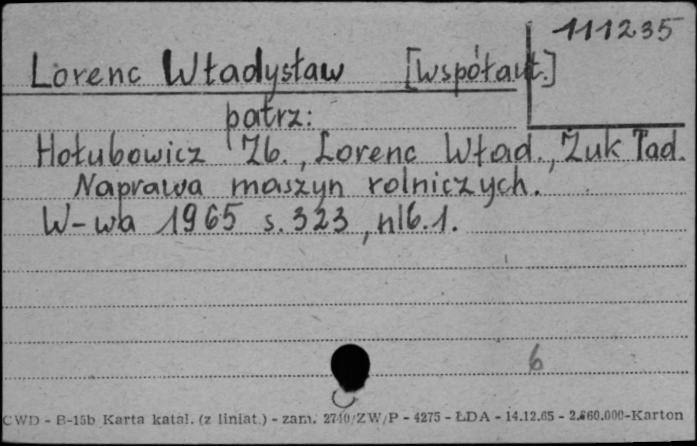 111235
Lorenc Władysław [współaut.]
patrz:
Hołubowicz Zb., Lorenc Wład., Żuk Tad.
Naprawa maszyn rolniczych.
W-wa 1965 s. 323, nlb. 1.
6
CWD - B-15b Karta katal. (z liniat.) - zam. 2740/ZW/P - 4275 - ŁDA - 14.12.65 - 2.860.000-Karton